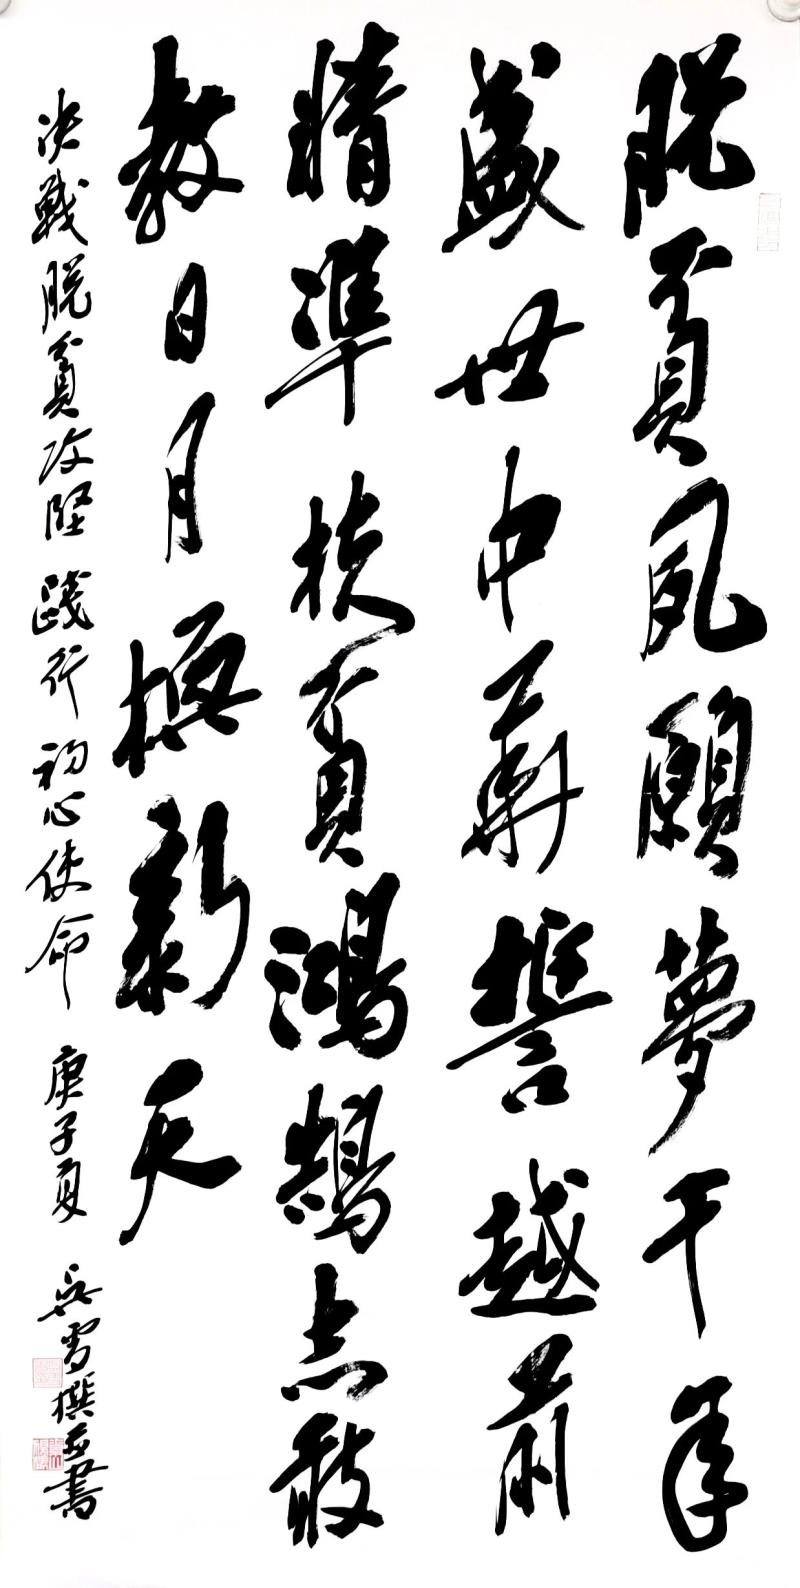 脱貧夙願夢千年
盛世中華誓越前
精準扶貧鴻鵠志敢
教日月換新天
决戰脱貧攻堅踐行初心使命庚子夏吳雪撰並書